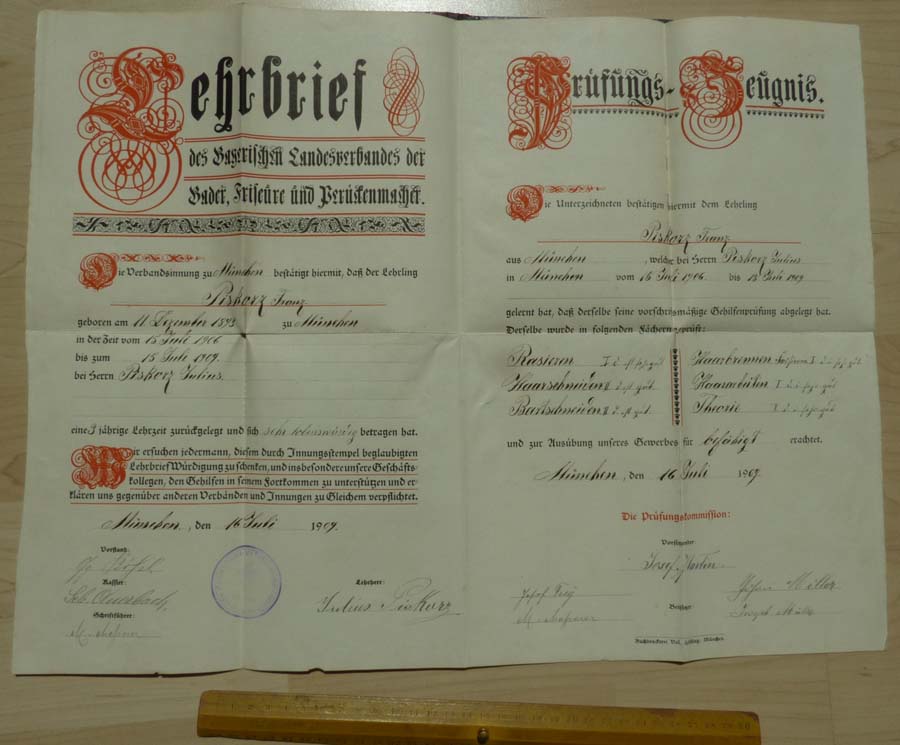 Lehrbrief
des Bayerischen Landesverbandes der
Bader, Friseure und Perückenmacher.
Die Verbandsinnung zu München bestätigt hiermit, daß der Lehrling
Piskorz Franz
geboren am 11 Dezember 1893 zu München
in der Zeit vom 15 Juli 1906
bis zum 15 Juli 1909.
bei Herrn Piskorz Julius.
eine 3 jährige Lehrzeit zurückgelegt und sich sehr lobenswürdig betragen hat.
Wir ersuchen jedermann, diesem durch Innungsstempel beglaubigten
Lehrbrief Würdigung zu schenken, und insbesondere unsere Geschäfts-
kollegen, den Gehilfen in seinem Fortkommen zu unterstützen und er-
klären uns gegenüber anderen Verbänden und Innungen zu Gleichem verpflichtet.
München, den 16 Juli 1909.
Vorstand:
Kassier:
Schriftführer:
Lehrherr:
Julius Piskorz
Prüfungs-Zeugnis.
Die Unterzeichneten bestätigen hiermit dem Lehrling
Piskorz Franz
aus München, welcher bei Herrn Piskorz Julius
in München vom 16 Juli 1906 bis 15 Juli 1909
gelernt hat, daß derselbe seine vorschriftsmäßige Gehilfenprüfung abgelegt hat.
Derselbe wurde in folgenden Fächern geprüft:
Rasieren I d. i. sehr gut
Haarschneiden II d. i. gut
Bartschneiden II d. i. gut
Haarbrennen I d. i. sehr gut
Haararbeiten I d. i. sehr gut
Theorie I d. i. sehr gut
und zur Ausübung unseres Gewerbes für befähigt erachtet.
München, den 16 Juli 1909.
Die Prüfungskommission:
Vorsitzender
Josef
Josef
Beisitzer
Joseph
Buchdruckerei Val. München.